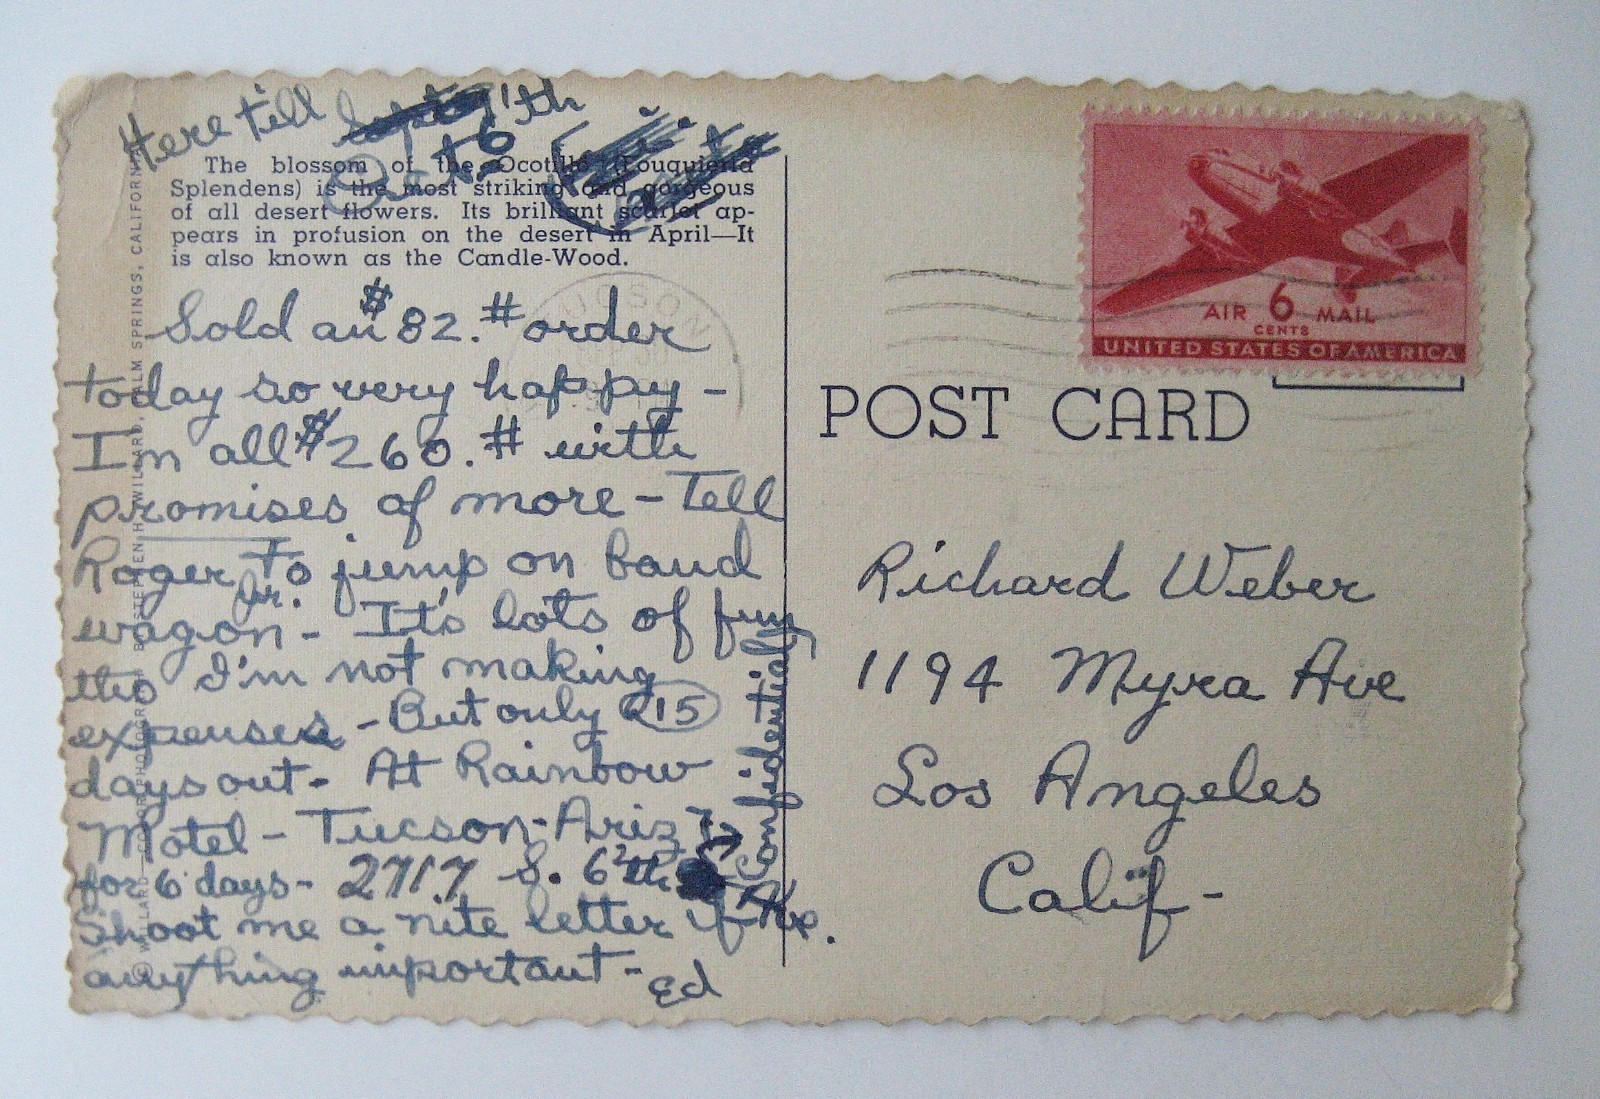 Here till 'th
Oct 6
The blossom of the Ocotillo (Fouquieria
Splendens) is the most striking and gorgeous
of all desert flowers. Its brilliant scarlet ap-
pears in profusion on the desert in April—It
is also known as the Candle-Wood.
Sold an $82.# order
today so very happy -
I'm all $260.# with
promises of more - Tell
Roger Jr. to jump on band
wagon - It's lots of fun
tho I'm not making
expenses - But only 15
days out - At Rainbow
Motel - Tucson - Ariz
for 6 days - 2717 S. 6th
Shoot me a nite letter if
anything important -
Ed
Confidential
STEPHEN H. WILLARD, PALM SPRINGS, CALIFORNIA
© WILLARD COLOR PHOTOGRAPH BY
TUCSON
AIR 6 MAIL
CENTS
UNITED STATES OF AMERICA
POST CARD
Richard Weber
1194 Myra Ave
Los Angeles
Calif -